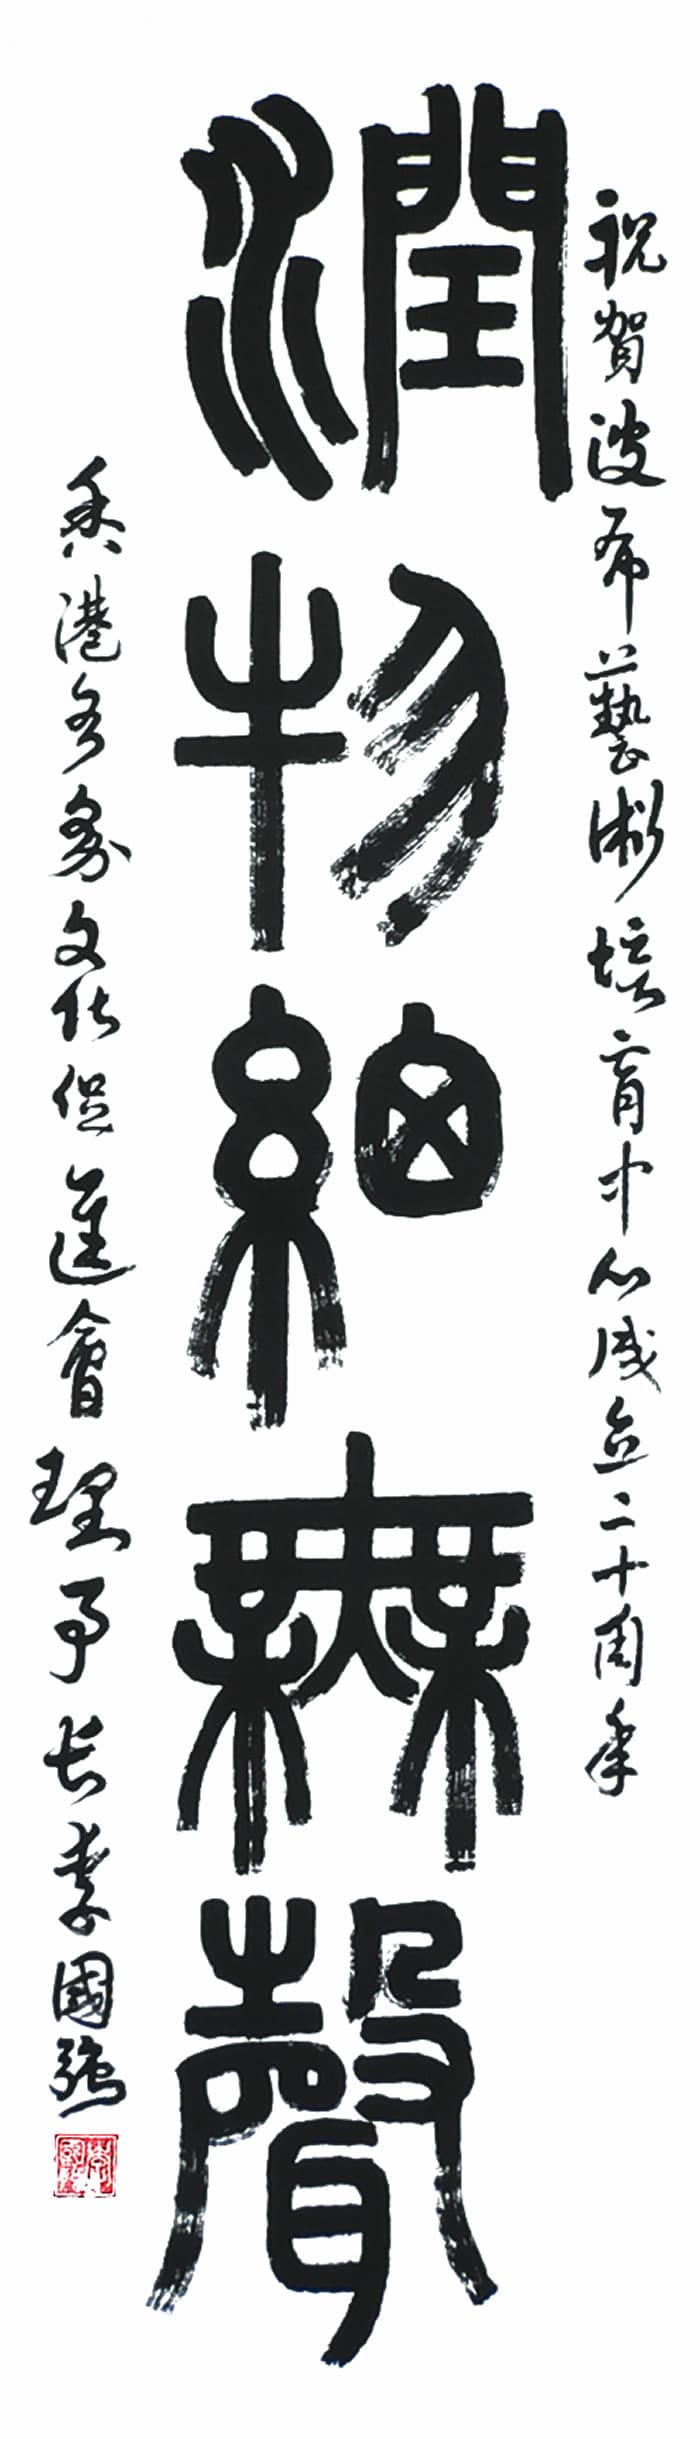 祝賀波希藝術培育中心成立二十周年
潤物細無聲
香港各界文化促進會理事长李國强